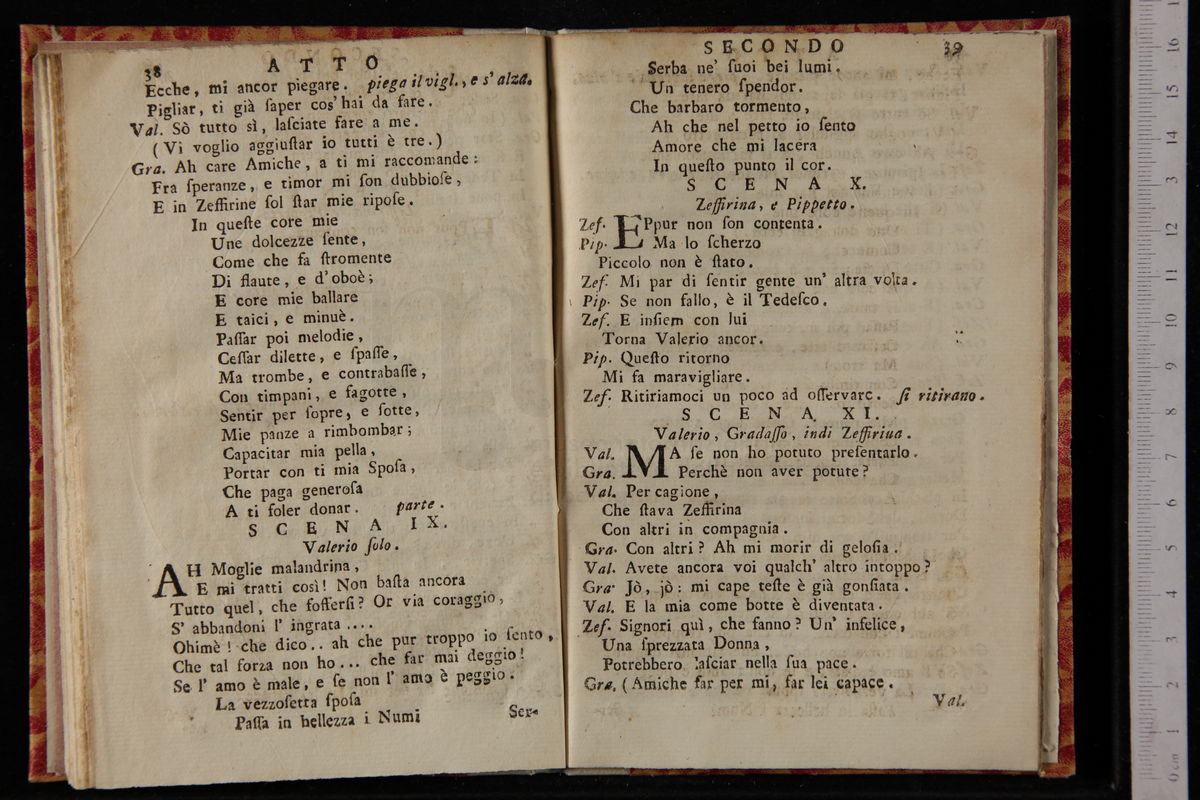 38
ATTO
Ecche, mi ancor piegare. piega il vigl., e s' alza.
Pigliar, ti già ſaper cos' hai da fare.
Val. Sò tutto sì, laſciate fare a me.
(Vi voglio aggiuſtar io tutti è tre.)
Gra. Ah care Amiche, a ti mi raccomande:
Fra ſperanze, e timor mi ſon dubbioſe,
E in Zeffirine ſol ſtar mie ripoſe.
In queſte core mie
Une dolcezze ſente,
Come che fa ſtromente
Di flaute, e d' oboè;
E core mie ballare
E taici, e minuè.
Paſſar poi melodie,
Ceſſar dilette, e ſpaſſe,
Ma trombe, e contrabaſſe,
Con timpani, e fagotte,
Sentir per ſopre, e ſotte,
Mie panze a rimbombar;
Capacitar mia pella,
Portar con ti mia Spoſa,
Che paga generoſa
A ti ſoler donar. parte.
SCENA IX.
Valerio ſolo.
AH Moglie malandrina,
E mi tratti così! Non baſta ancora
Tutto quel, che ſofferſi? Or via coraggio,
S' abbandoni l' ingrata ....
Ohimè! che dico.. ah che pur troppo io ſento,
Che tal forza non ho... che far mai deggio!
Se l' amo è male, e ſe non l' amo è peggio.
La vezzoſetta ſpoſa
Paſſa in bellezza i Numi
Ser-
SECONDO
39
Serba ne' ſuoi bei lumi.
Un tenero ſpendor.
Che barbaro tormento,
Ah che nel petto io ſento
Amore che mi lacera
In queſto punto il cor.
SCENA X.
Zeffirina, e Pippetto.
Zef. EPpur non ſon contenta.
Pip. Ma lo ſcherzo
Piccolo non è ſtato.
Zef. Mi par di ſentir gente un' altra volta.
Pip. Se non fallo, è il Tedeſco.
Zef. E inſiem con lui
Torna Valerio ancor.
Pip. Queſto ritorno
Mi fa maravigliare.
Zef. Ritiriamoci un poco ad oſſervare. ſi ritirano.
SCENA XI.
Valerio, Gradaſſo, indi Zeffiriua.
Val. MA ſe non ho potuto preſentarlo.
Gra. Perchè non aver potute?
Val. Per cagione,
Che ſtava Zeffirina
Con altri in compagnia.
Gra. Con altri? Ah mi morir di geloſia.
Val. Avete ancora voi qualch' altro intoppo?
Gra. Jò, jò: mi cape teſte è già gonfiata.
Val. E la mia come botte è diventata.
Zef. Signori quì, che fanno? Un' infelice,
Una ſprezzata Donna,
Potrebbero laſciar nella ſua pace.
Gra. (Amiche far per mi, far lei capace.
Val.
0 cm 1 2 3 4 5 6 7 8 9 10 11 12 13 14 15 16